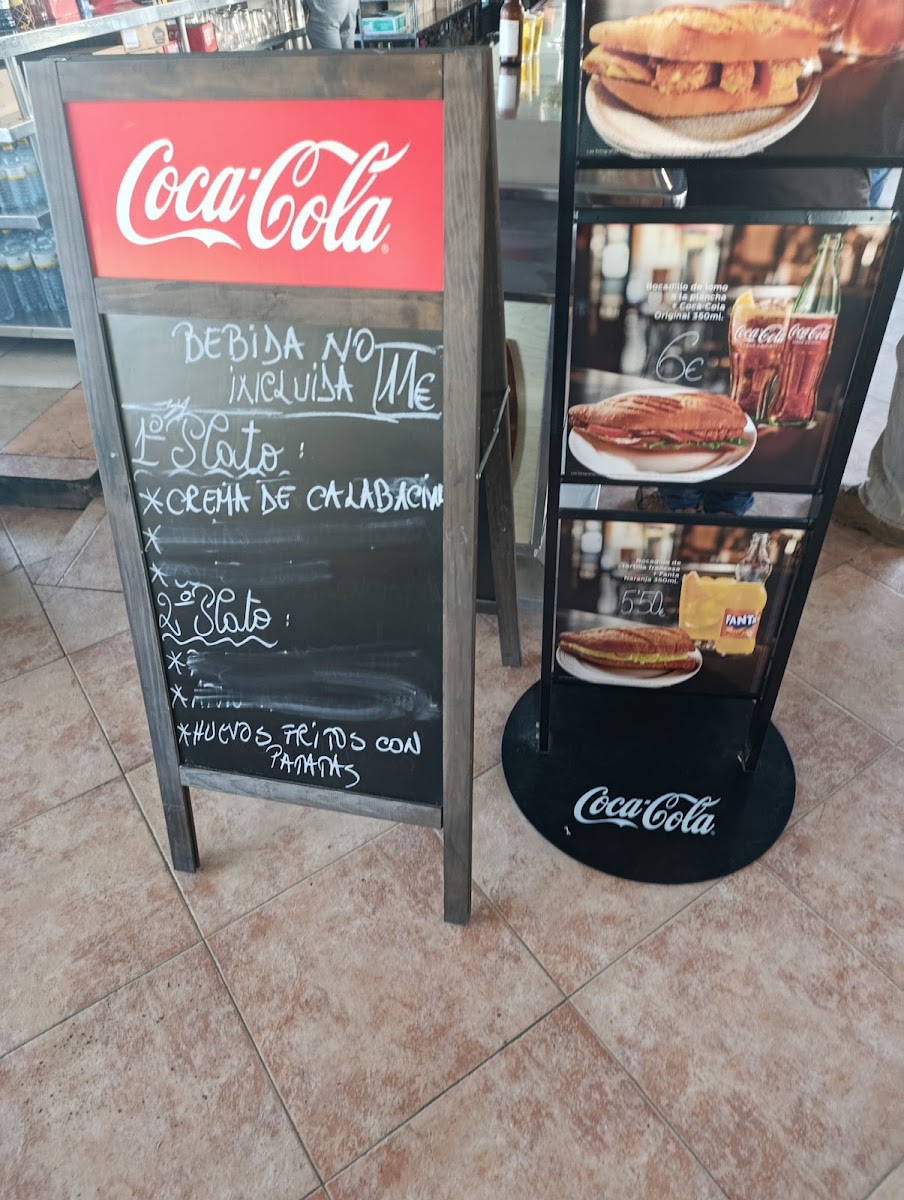 Coca-Cola
BEBIDA NO
INCLUIDA 11€
1º Plato :
*CREMA DE CALABACIN
*
*
2º Plato :
*
*
*HUEVOS FRITOS CON
PATATAS
Bocadillo de lomo
a la plancha
+ Coca-Cola
Original 350ml.
6€
Coca-Cola
Coca-Cola
Bocadillo de
tortilla francesa
+ Fanta
Naranja 350ml.
5'50€
FANTA
Coca-Cola